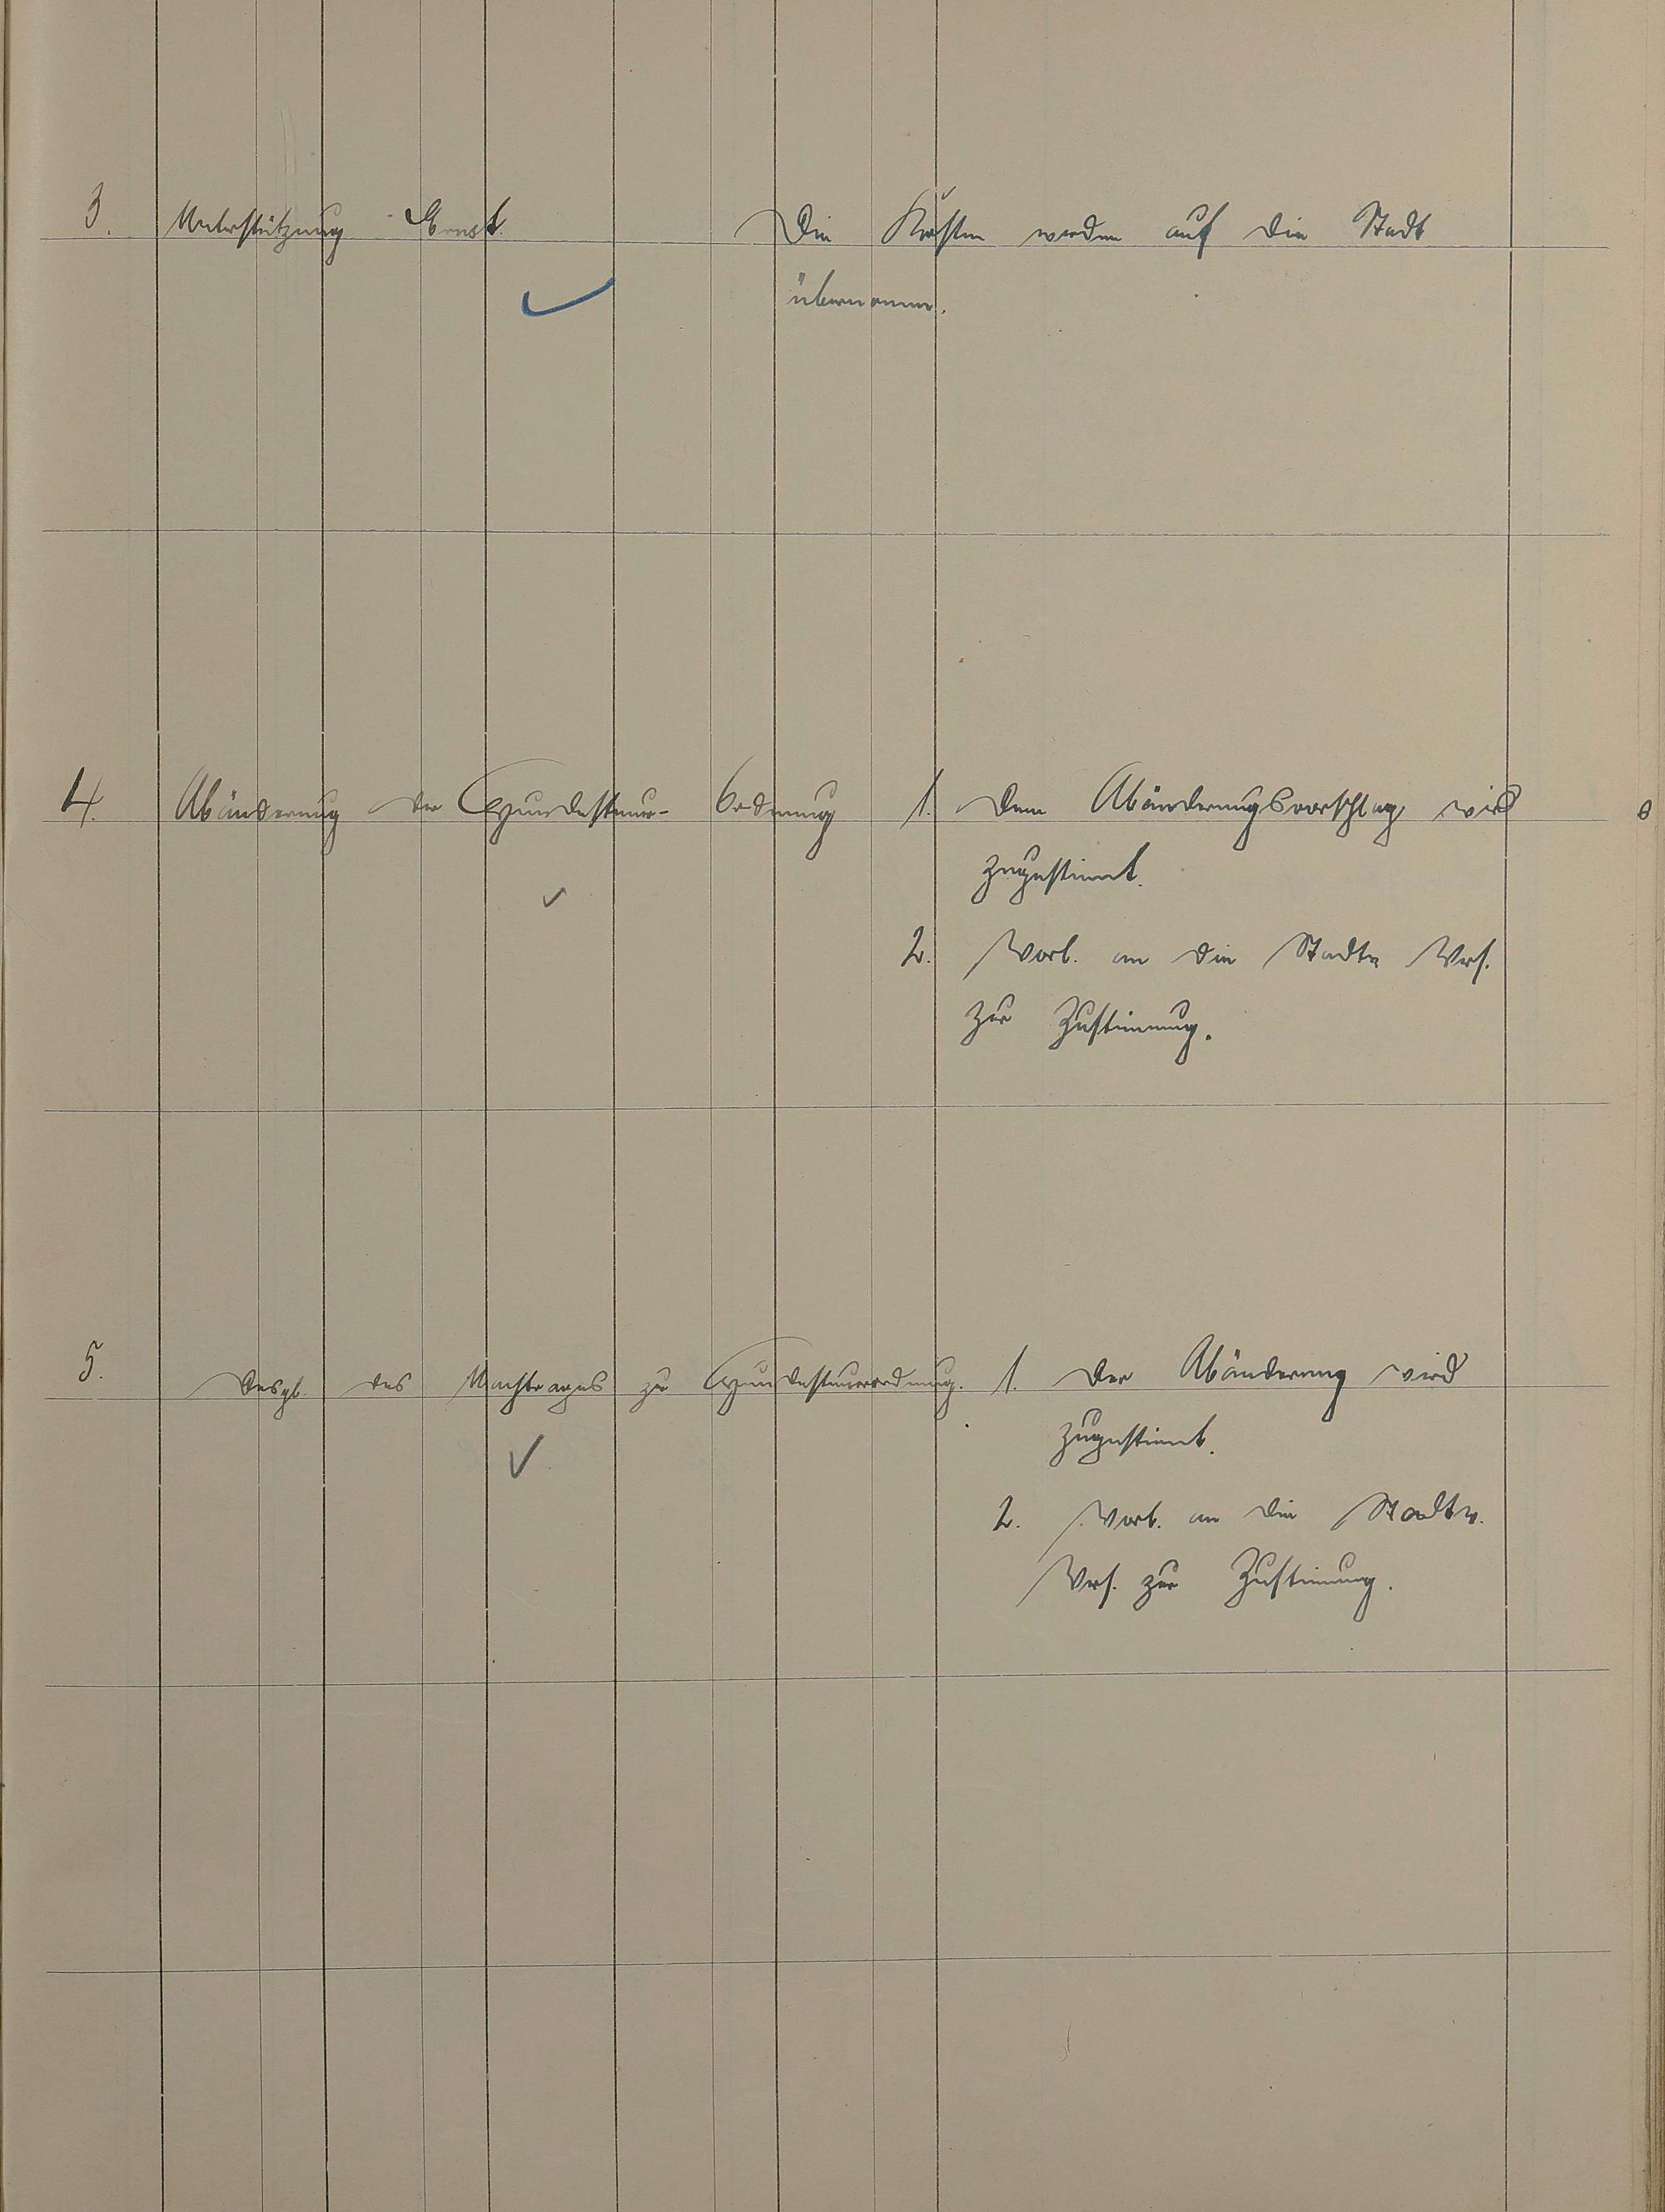 3. Unterstützung Ernst. Die Kosten werden auf die Stadt
übernomm.
4. Abänderung der Hundesteuer- Ordnung 1. Dem Abänderungsvorschlag wird
zugestimmt.
2. Vorl. an die Stadtv. Vers.
zur Zustimmung.
5. Desgl. des Nachtrages zur Hundesteuerordnung. 1. Der Abänderung wird
zugestimmt.
2. Vorl. an die Stadtv.
Vers. zur Zustimmung.